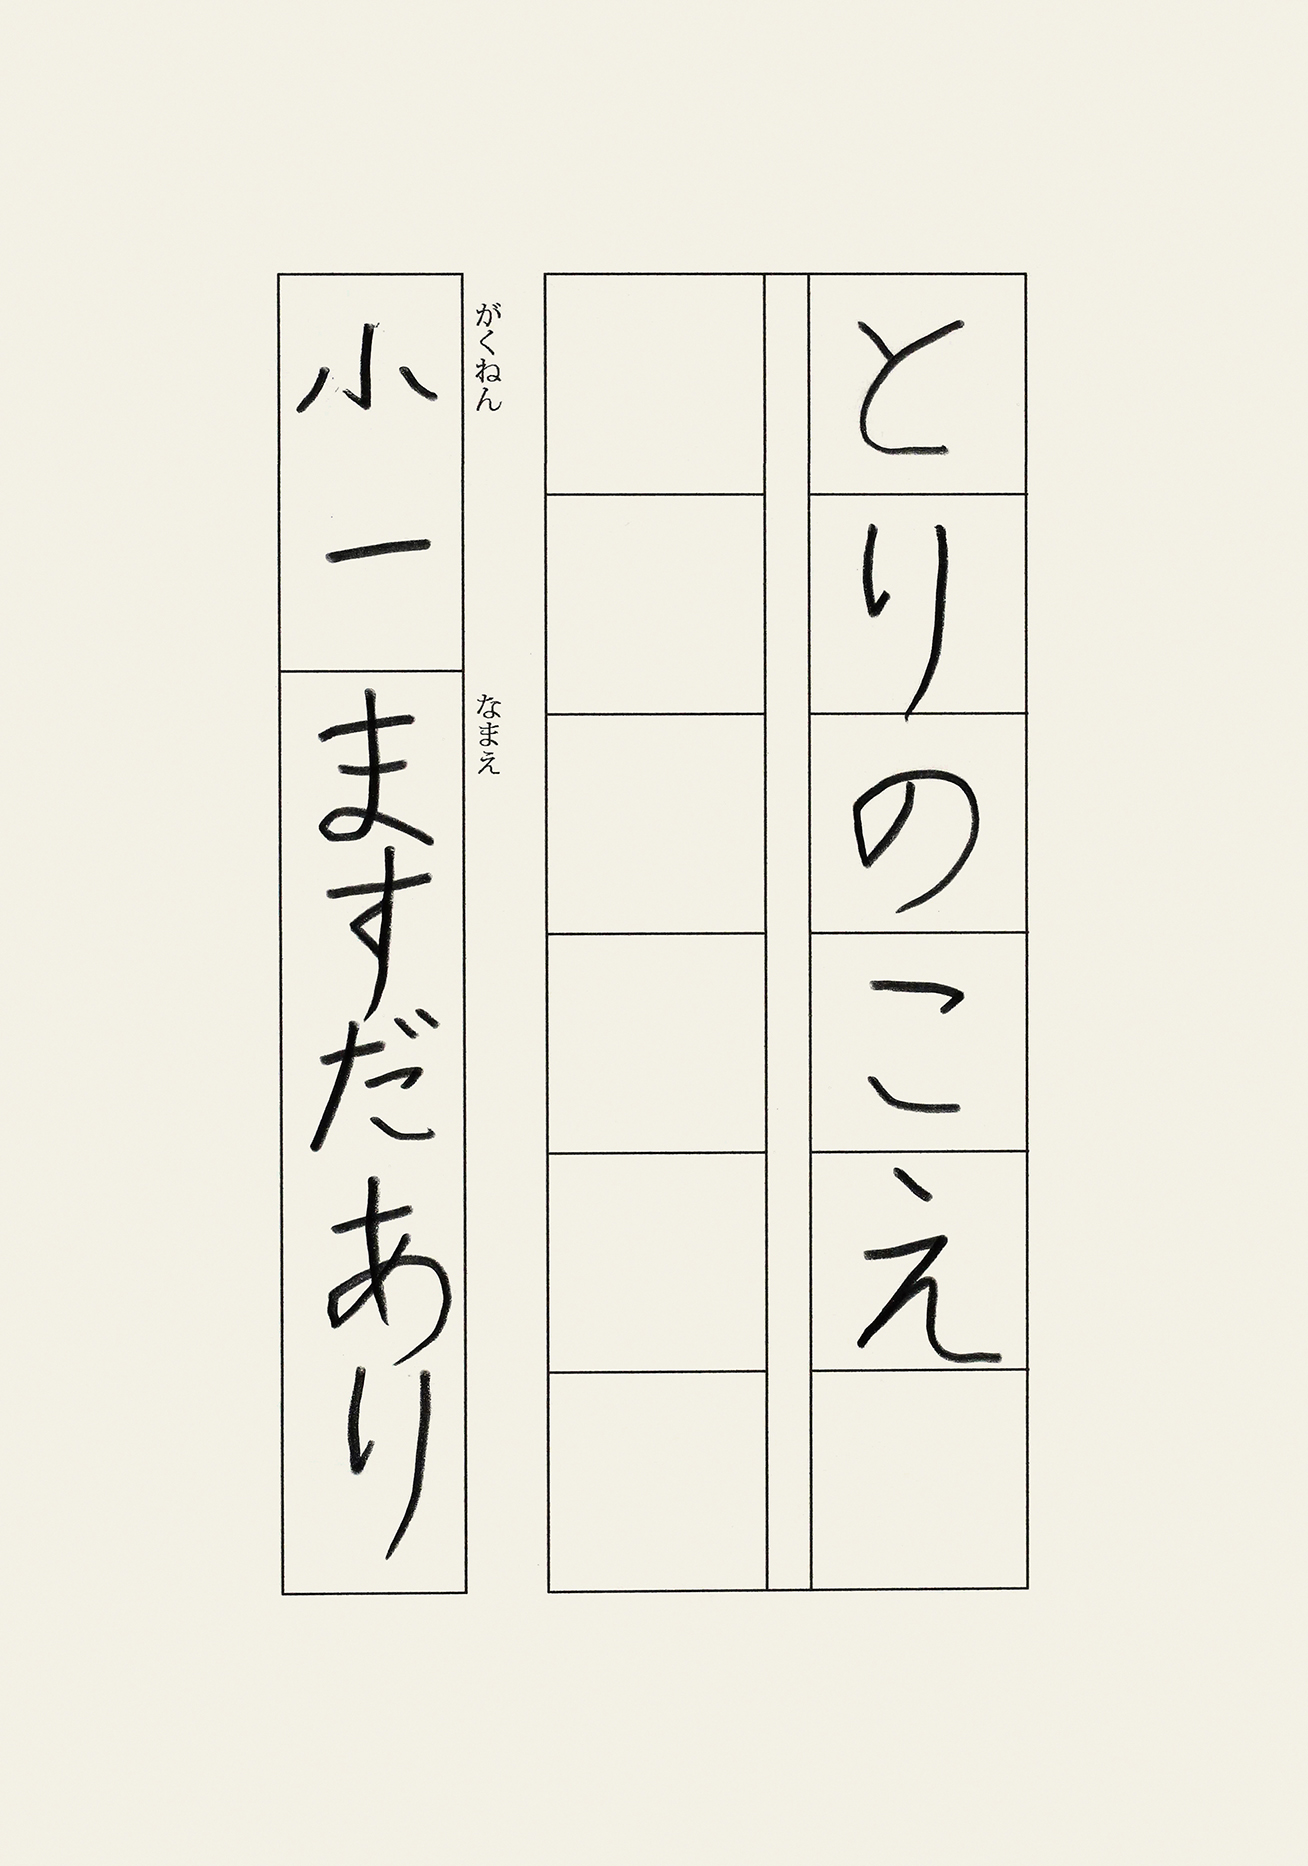 とりのこえ
がくねん
小一
なまえ
ますだあり